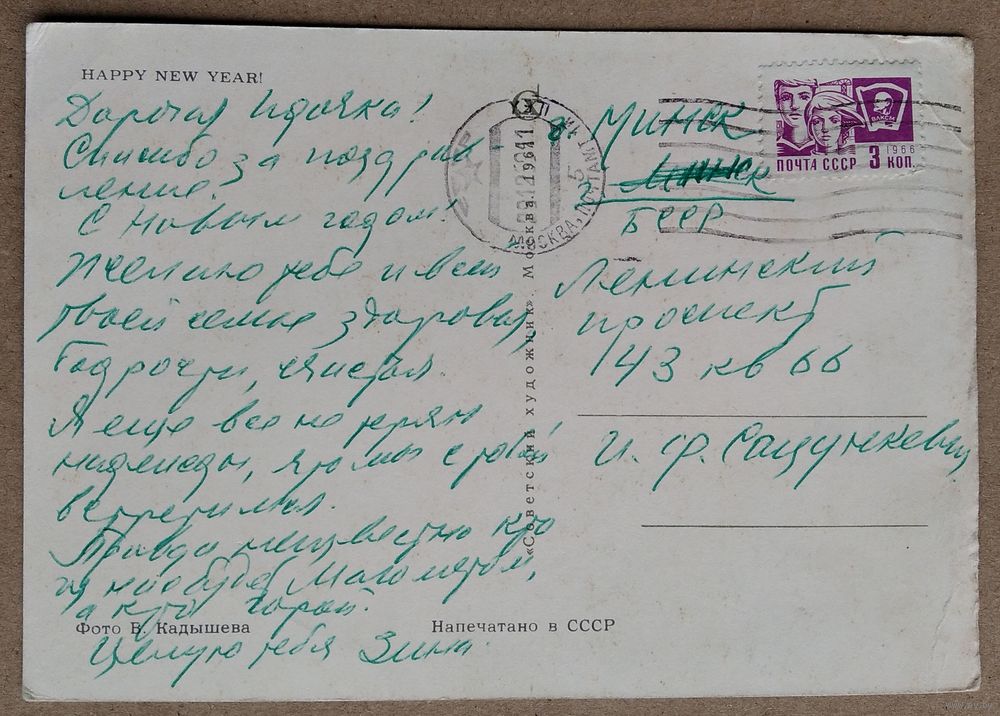 HAPPY NEW YEAR!
Дорогая Идочка!
Спасибо за поздрав
ление!
С Новым годом!
Желаю тебе и всей
твоей семье здоровья,
бодрости, счастья.
Я еще все не теряю
надежды, что мы с тобой
встретимся.
Правда неизвестно кто
из нас будет Магометом,
а кто горой.
Целую тебя Зина.
Фото В. Кадышева
Напечатано в СССР
«Советский художник». Москва. 1964
МОСКВА, ПОЧТАМТ
ПОЧТА СССР 3 КОП.
1966
ВЛКСМ
г. Минск
Минск
БССР
Ленинский
проспект
143 кв 66
И. Ф. Сацункевич